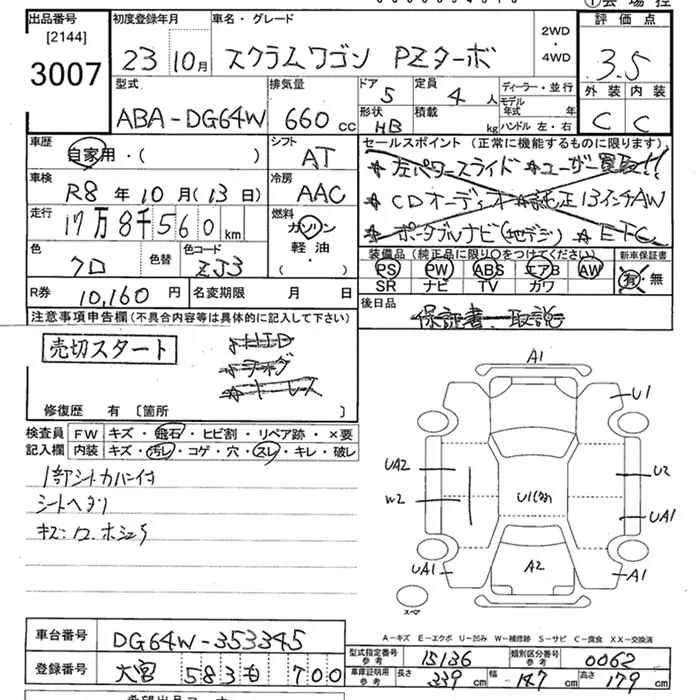 出品番号 初度登録年月 車名・グレード 評価点
[2144]
3007 23 10月 スクラムワゴン PZターボ 2WD・4WD 3.5
型式 排気量 ドア 定員 ディーラー・並行 外装 内装
ABA-DG64W 660cc 5 4人 モデル年式 年 C C
形状 HB 積載 kg ハンドル 左・右
車歴 シフト セールスポイント(正常に機能するものに限ります)
自家用・( ) AT ★左パワースライド ★ユーザー買取!!
車検 冷房
R8年10月(13日) AAC ★CDオーディオ ★純正13インチAW
走行 燃料
17万8千560km ガソリン ★ポータブルナビ(地デジ) ★ETC
色 色替 色コード 軽油 装備品(純正品に限り○をつけてください) 新車保証書
クロ ZJ3 ・( ) PS PW ABS エアB AW 有・無
SR ナビ TV カワ
R券 10,160円 名変期限 月 日 後日品
保証書 取説
注意事項申告欄(不具合内容等は具体的に記入して下さい)
売切スタート HID
修復歴 有 [箇所 ]
検査員 FW キズ・飛石・ヒビ割・リペア跡・×要
記入欄 内装 キズ・汚レ・コゲ・穴・スレ・キレ・破レ
1部シートカバー付
シートヘタリ
A1
U1
UA2 U2
W2 U1
UA1
UA1 A2 A1
スペア
A-キズ E-エクボ U-凹み W-補修跡 S-サビ C-腐食 XX-交換済
車台番号 DG64W-353345
型式指定番号 参考 15136 類別区分番号 参考 0062
登録番号 大宮 583 も 700
車庫証明用 参考 長さ 339cm 幅 147cm 高さ 179cm